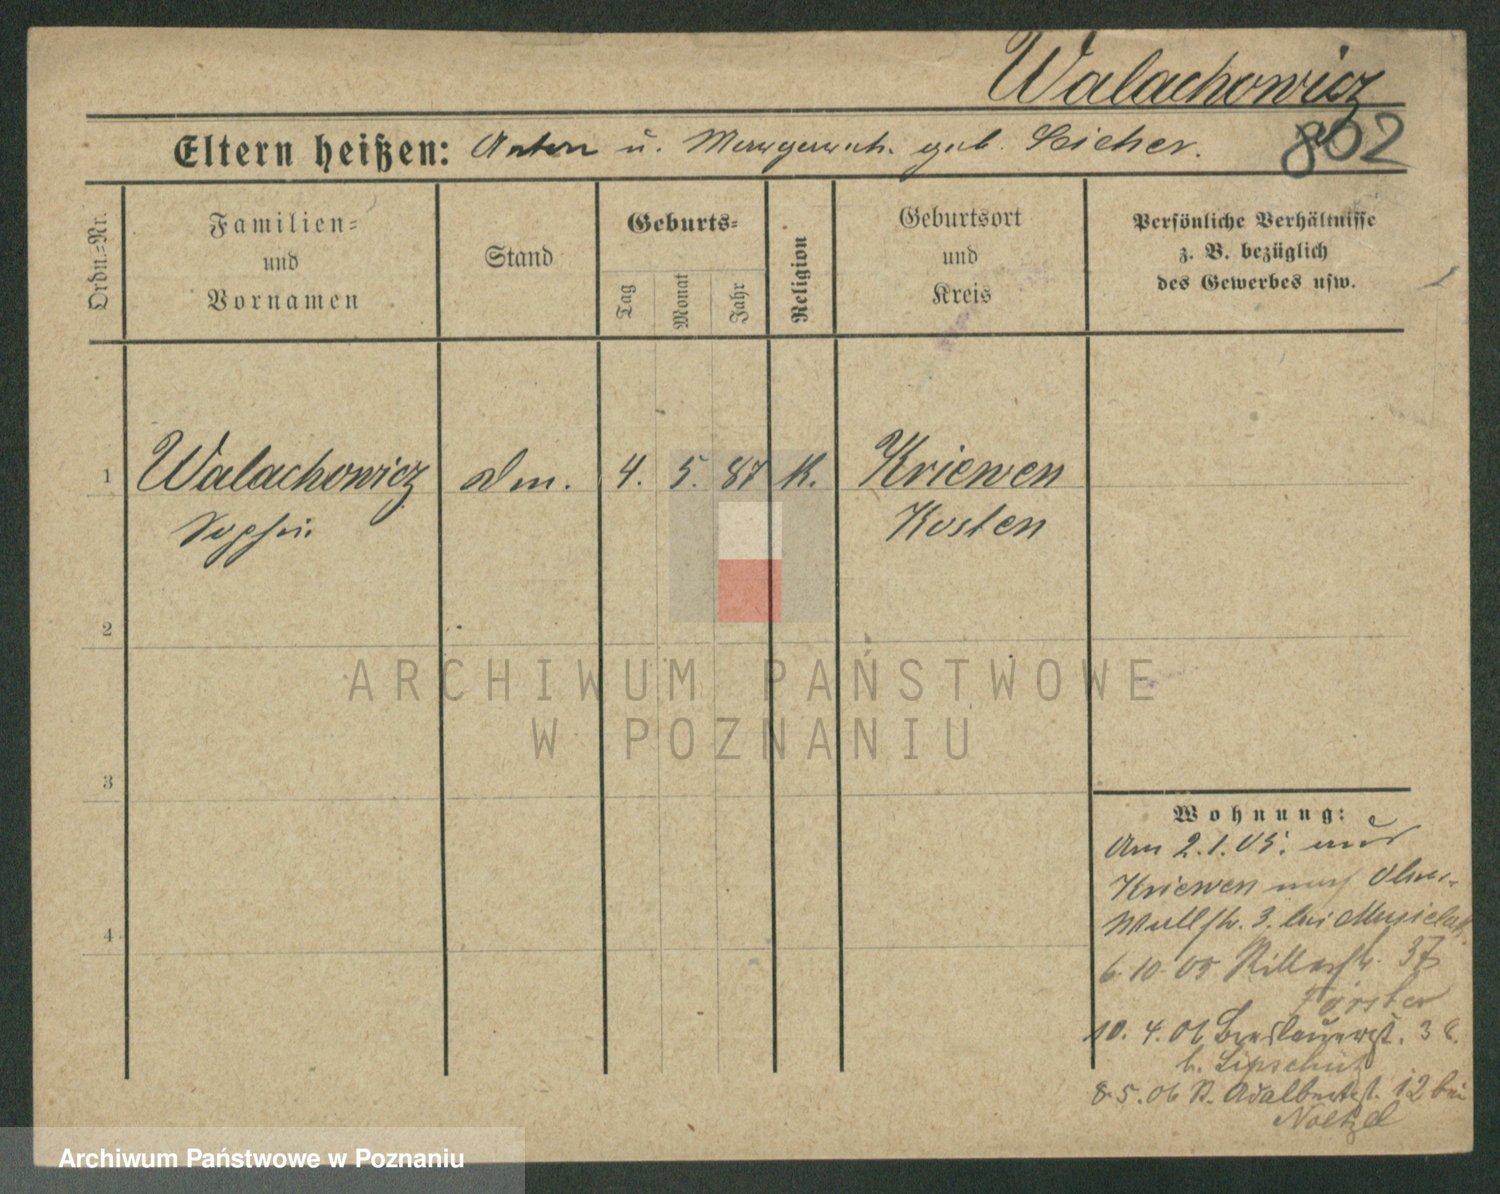 Walachowicz
802
Eltern heißen: Anton u. geb.
Ordn.-Nr.
Familien-
und
Vornamen
Stand
Geburts-
Tag
Monat
Jahr
Religion
Geburtsort
und
Kreis
Persönliche Verhältnisse
z. B. bezüglich
des Gewerbes usw.
1 Walachowicz 4. 5. 87 K. Kriewen
Sophie Kosten
2
3
4
Wohnung:
Am 2.1.05. aus
Kriewen nach
3. bei
6.10.05 Ritterstr. 37
Förster
10. 4. 06 Breslauerst. 38.
b. Lipschütz
8.5.06 St. Adalbertst. 12 bei
Noetzel
ARCHIWUM PAŃSTWOWE
W POZNANIU
Archiwum Państwowe w Poznaniu